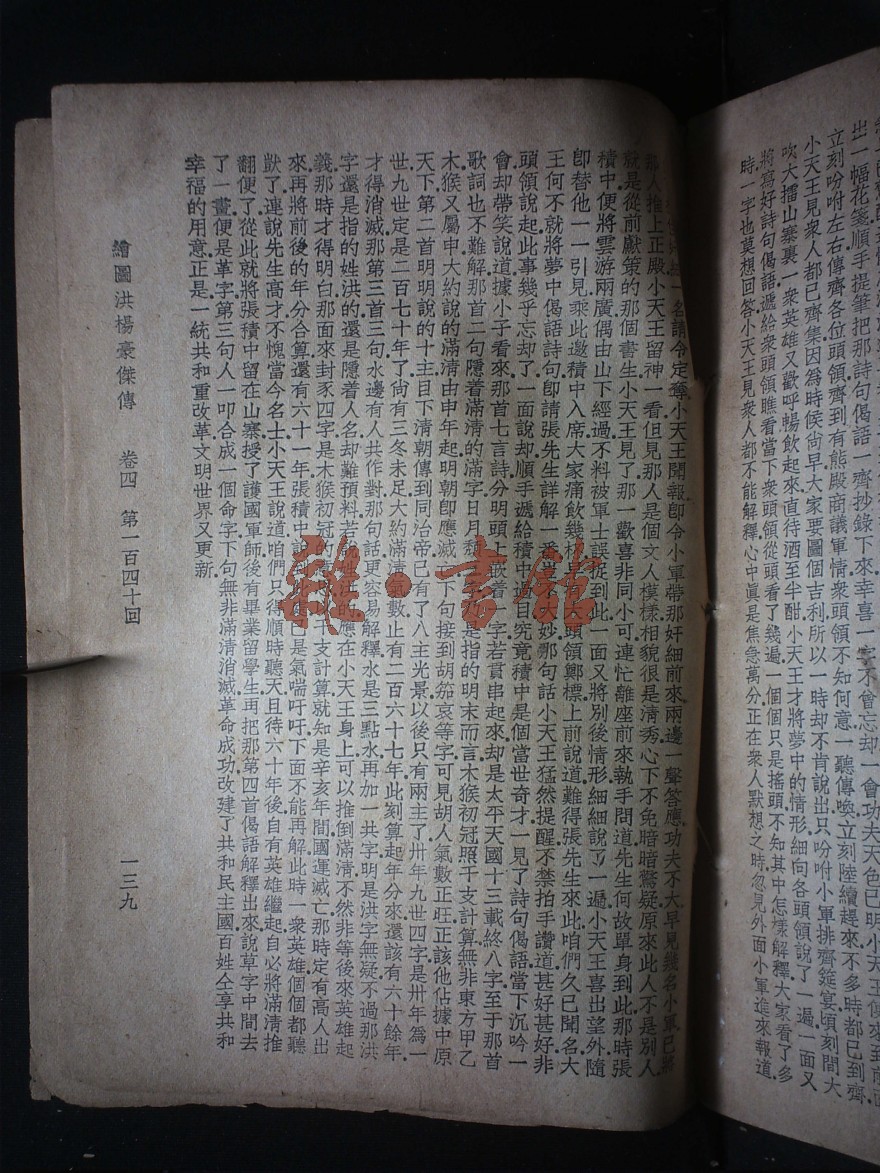 出一幅花箋順手提筆把那詩句偈語一齊抄錄下來.幸喜一字不曾忘却.一會功夫天色已明.小天王便來到前面
立刻吩咐左右.傳齊各位頭領.齊到有熊殿商議軍情.衆頭領不知何意.一聽傳喚.立刻陸續趕來.不多時都已到齊.
小天王見衆人都已齊集.因爲時候尙早.大家要圖個吉利.所以一時却不肯說出.只吩咐小軍排齊筵宴.頃刻間大
吹大擂.山寨裏一衆英雄.又歡呼暢飮起來.直待酒至半酣.小天王才將夢中的情形.細向各頭領說了一遍.一面又
將寫好詩句偈語遞給衆頭領瞧看.當下衆頭領從頭看了幾遍.一個個只是搖頭.不知其中怎樣解釋.大家看了多
時.一字也莫想回答.小天王見衆人都不能解釋.心中眞是焦急萬分.正在衆人默想之時.忽見外面小軍進來報道
一名請令定奪.小天王聞報.卽令小軍帶那奸細前來.兩邊一聲答應.功夫不大.早見幾名小軍.已將
那人推上正殿.小天王留神一看.但見那人是個文人模樣.相貌很是淸秀.心下不免暗暗驚疑.原來此人不是別人.
就是從前獻策的那個書生.小天王見了.那一歡喜.非同小可.連忙離座前來執手問道.先生何故單身到此.那時張
積中便將雲游兩廣.偶由山下經過.不料被軍士誤捉到此.一面又將別後情形.細細說了一遍.小天王喜出望外.隨
卽替他一一引見.乘此邀積中入席.大家痛飮幾杯.頭領鄭標上前說道.難得張先生來此.咱們久已聞名.大
王何不就將夢中偈語詩句.卽請張先生詳解一番.豈不大妙.那句話小天王猛然提醒.不禁拍手讚道.甚好甚好.非
頭領說起此事.幾乎忘却了.一面說.却順手遞給積中過目.究竟積中是個當世奇才.一見了詩句偈語.當下沉吟一
會.却帶笑說道.據小子看來.那首七言詩.分明頭上嵌着一字.若貫串起來.却是太平天國十三載終八字.至于那首
歌詞也不難解.那首二句隱着滿淸的滿字.日月穆宗乃是指的明末而言.木猴初冠.照干支計算.無非東方甲乙
木.猴又屬申.大約說的滿淸由申年起.明朝卽應滅.下句接到胡笳哀等字.可見胡人氣數正旺.正該他佔據中原
天下.第二首明明說的十主目下淸朝傳到同治帝.已有了八主光景.以後只有兩主了.卅年九世四字是卅年爲一
世.九世定是二百七十年了.尙有三冬未足.大約滿淸氣數.止有二百六十七年.此刻算起年分來.還該有六十餘年.
才得消滅.那第三首三句水邊有人共作對.那句話更容易解釋.水是三點水.再加一共字.明是洪字無疑.不過那洪
字還是指的姓洪的.還是隱着人名.却難預料.若說姓洪的應在小天王身上.可以推倒滿淸.不然非等後來英雄起
義.那時才得明白.那面來封豕四字.是木猴初冠的干支計算.就知是辛亥年間.國運滅亡.那時定有高人出
來.再將前後的年分合算.還有六十一年.張積中說到此處.已是氣喘吁吁.下面不能再解.此時一衆英雄.個個都聽
獃了.連說先生高才.不愧當今名士.小天王說道.咱們只得順時聽天.且待六十年後.自有英雄繼起.自必將滿淸推
翻便了.從此就將張積中留在山寨.授了護國軍師.後有畢業留學生.再把那第四首偈語解釋出來.說草字中間去
了一畫.便是革字.第三句人一叩合成一個命字.下句無非滿淸消滅.革命成功.改建了共和民主國.百姓仝享共和
幸福的用意.正是一統共和重改革.文明世界又更新.
繪圖洪楊豪傑傳　卷四　第一百四十回　一三九
雜·書館